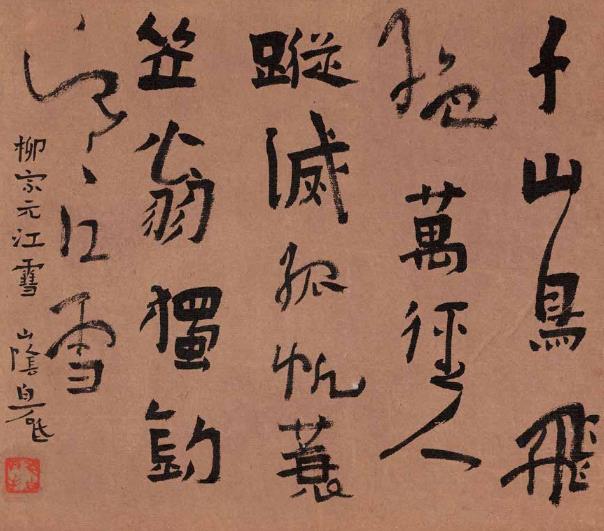 千山鳥飛
絕萬徑人
蹤滅孤帆蓑
笠翁獨釣
寒江雪
柳宗元江雪
山陰